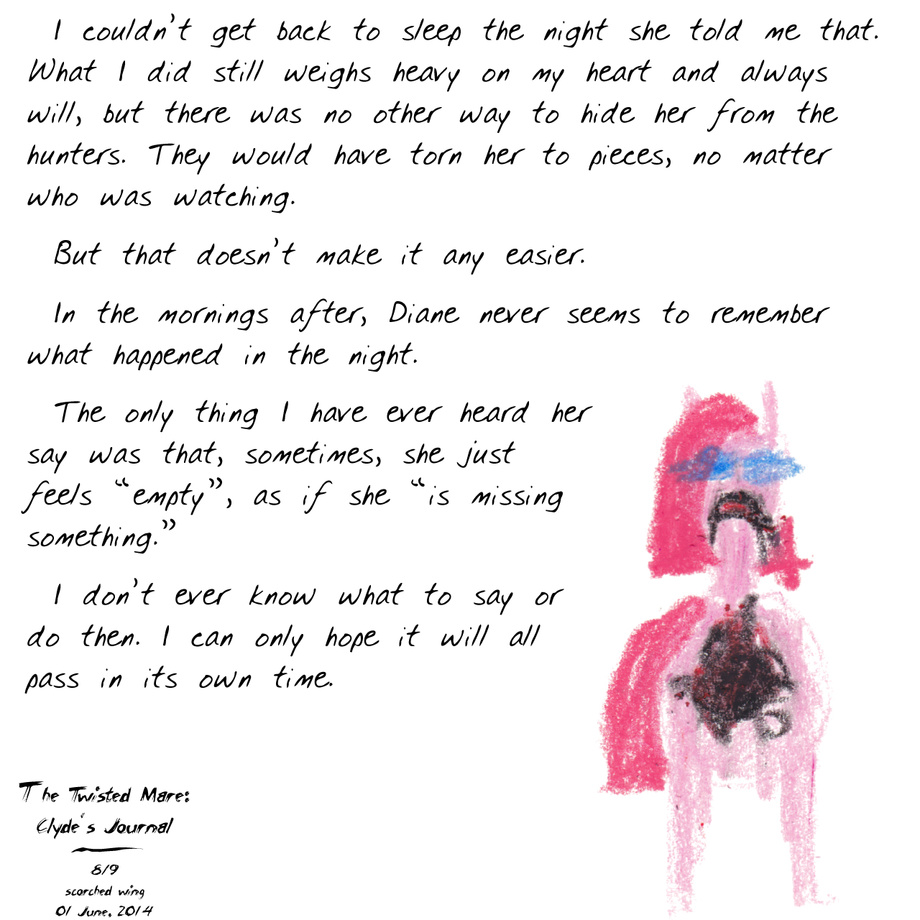 I couldn't get back to sleep the night she told me that.
What I did still weighs heavy on my heart and always
will, but there was no other way to hide her from the
hunters. They would have torn her to pieces, no matter
who was watching.
But that doesn't make it any easier.
In the mornings after, Diane never seems to remember
what happened in the night.
The only thing I have ever heard her
say was that, sometimes, she just
feels “empty”, as if she “is missing
something.”
I don't ever know what to say or
do then. I can only hope it will all
pass in its own time.
The Twisted Mare:
Clyde's Journal
8/9
scorched wing
01 June, 2014